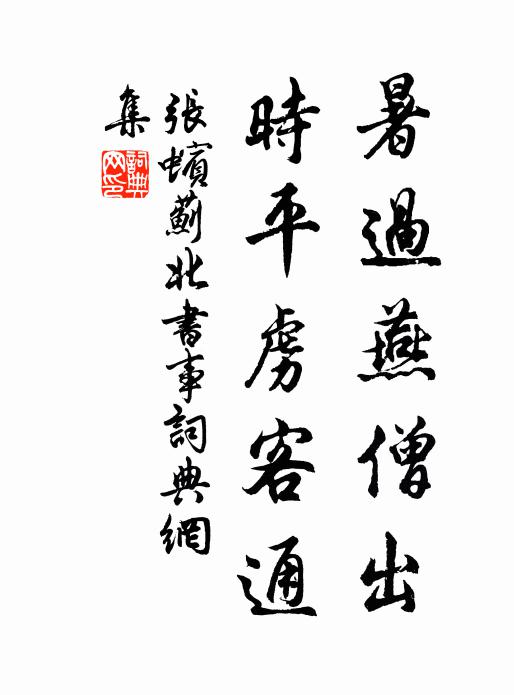 暑過燕僧出
時平虜客通
張蠙薊北書事詞典網
集
詞典
网印